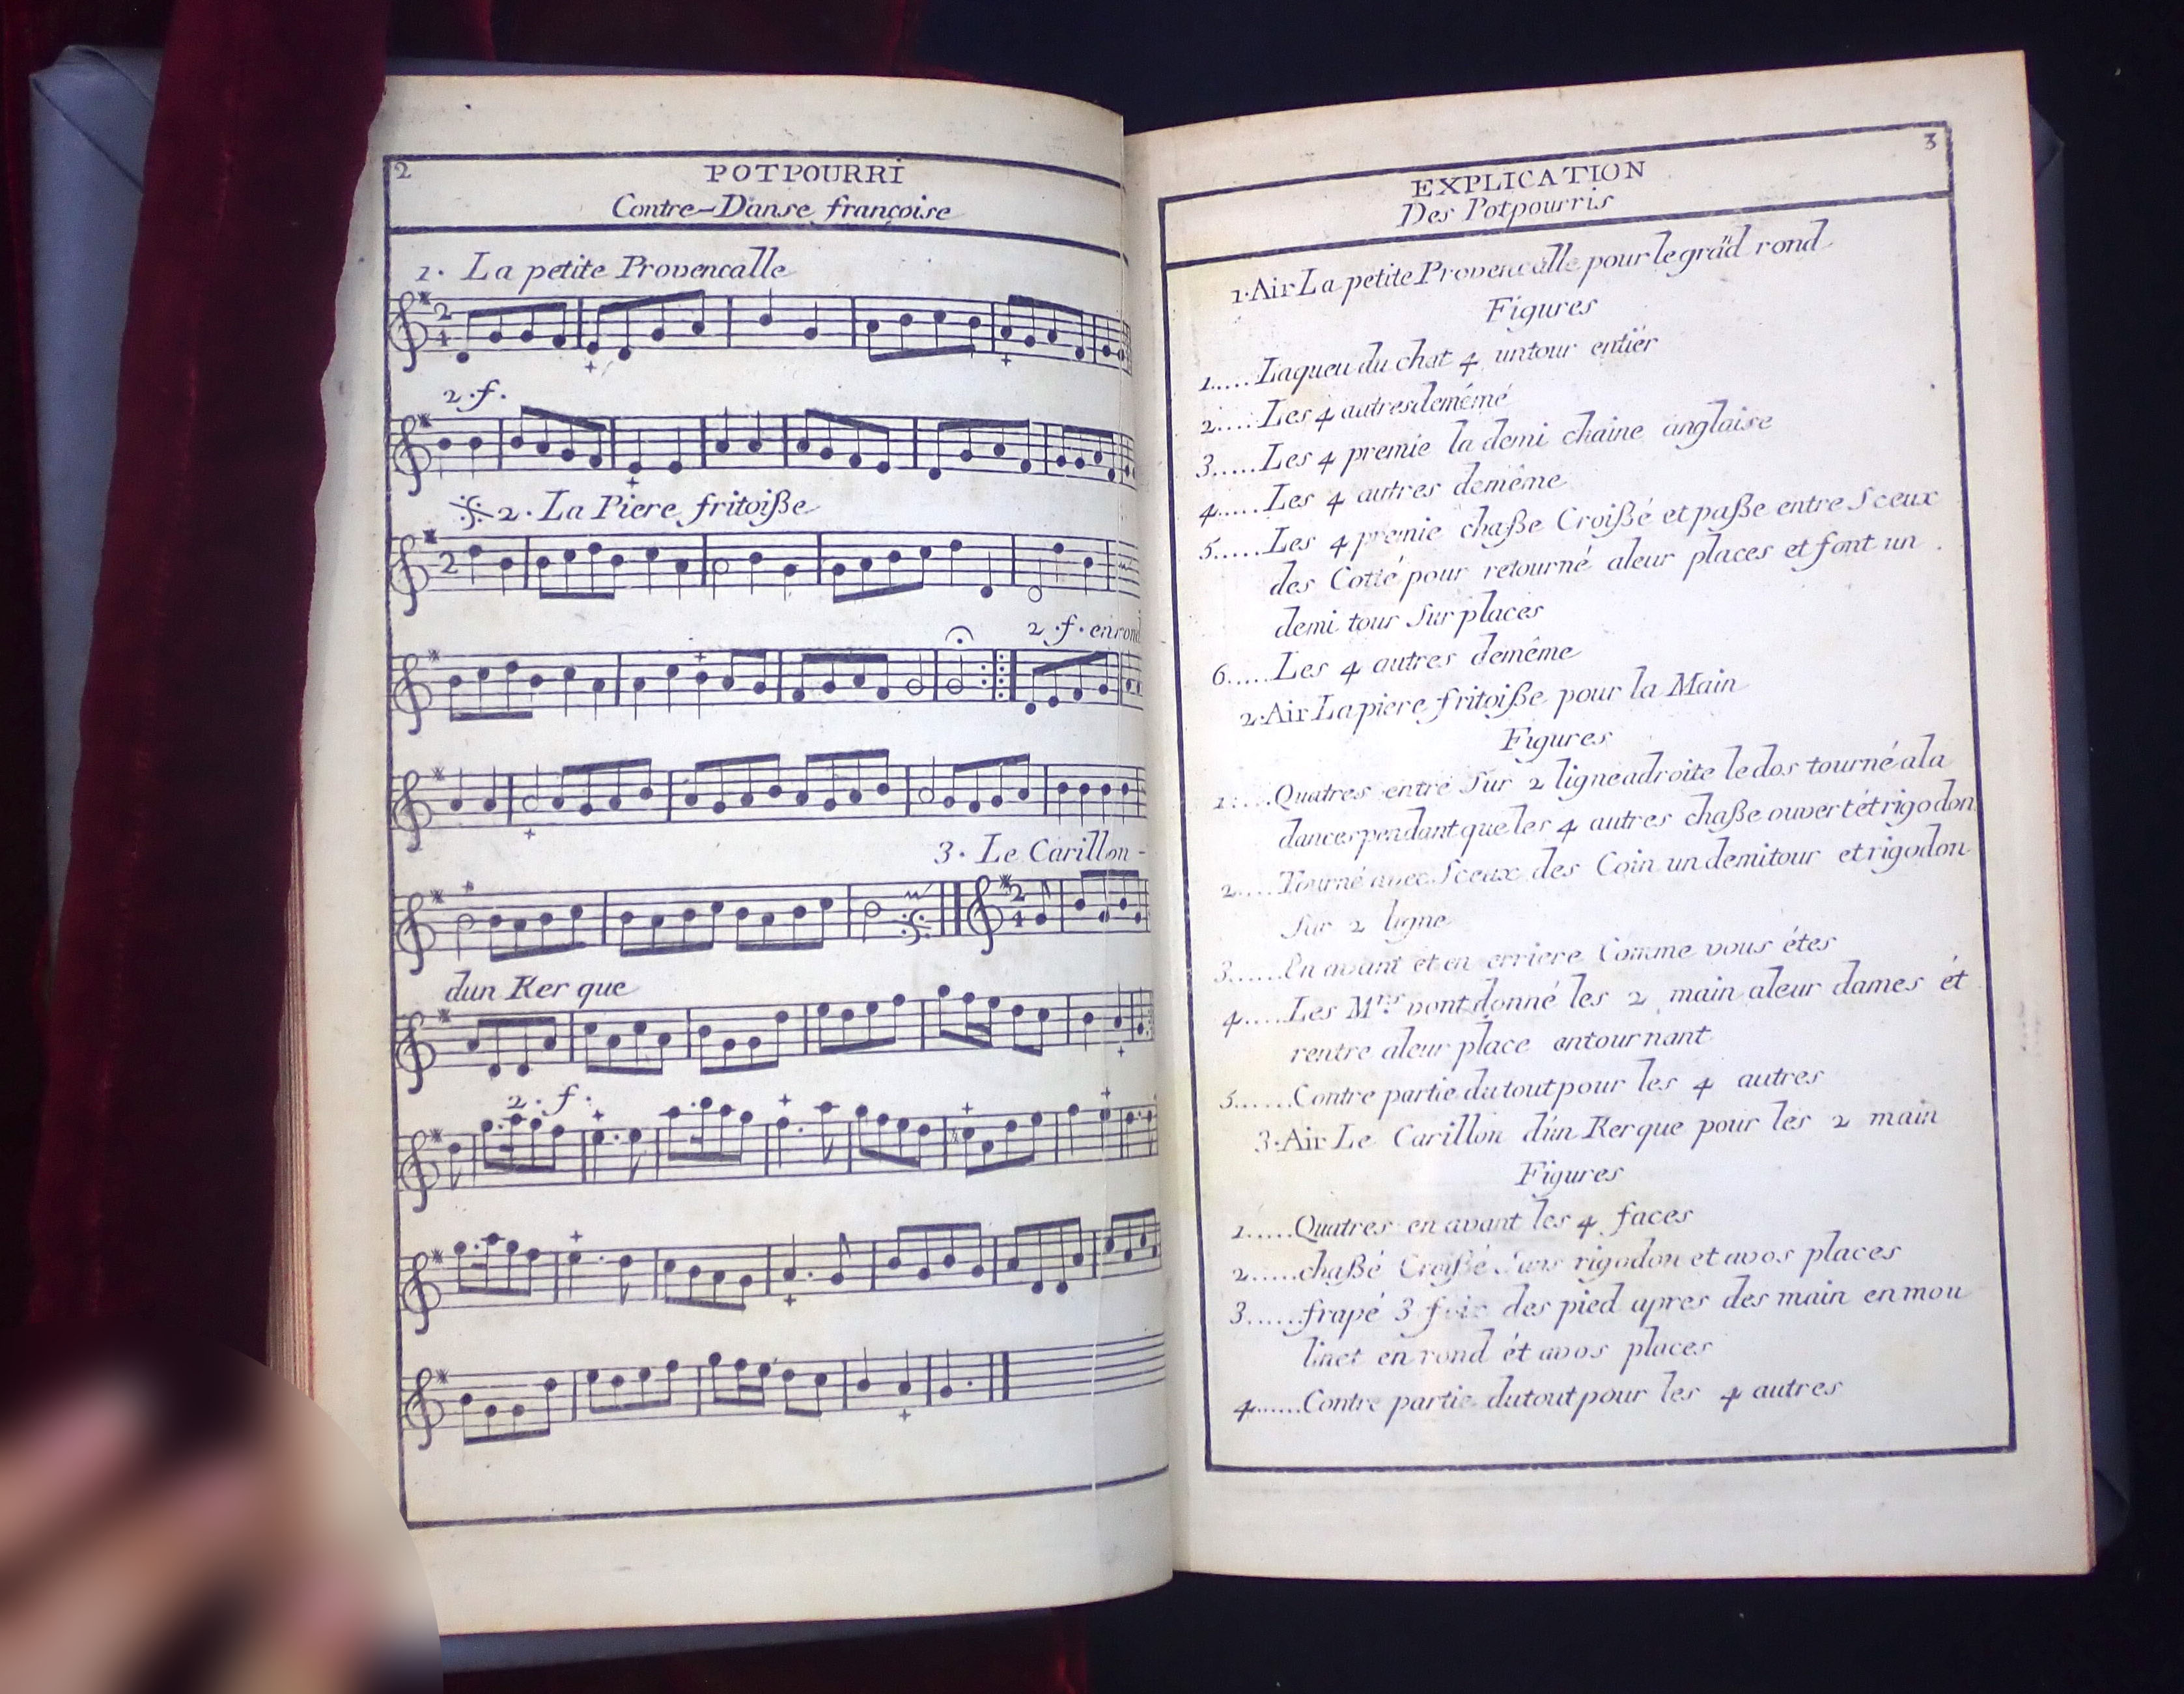 2
POTPOURRI
Contre-Danse françoise
1. La petite Provencalle
2.f.
2. La Piere fritoiße
2.f. en rond
3. Le Carillon-
dun Ker que
2.f.
3
EXPLICATION
Des Potpourris
1. Air La petite Provencalle pour le grãd rond
Figures
1..... Laqueu du chat 4 untour entiér
2..... Les 4 autres demémé
3..... Les 4 premie la demi chaine anglaise
4..... Les 4 autres demême
5..... Les 4 premie chaße Croißé et paße entre Sceux
des Cotté pour retourné aleur places et font un
demi tour Sur places
6..... Les 4 autres demême
2. Air La piere fritoiße pour la Main
Figures
1..... Quatres entré Sur 2 ligne adroite le dos tourné ala
dances pendant que les 4 autres chaße ouvert ét rigodon
2.... Tourné avec Sceux des Coin un demi tour et rigodon
Sur 2 ligne
3..... En avant et en erriere Comme vous étes
4..... Les Mrs. vont donné les 2 main aleur dames ét
rentre aleur place entournant
5...... Contre partie du tout pour les 4 autres
3. Air Le Carillon dún Kerque pour les 2 main
Figures
1..... Quatres en avant les 4 faces
2..... chaßé Croißé Sans rigodon et avos places
3...... frapé 3 fois des pied apres des main en mou
linet en rond ét avos places
4...... Contre partie du tout pour les 4 autres